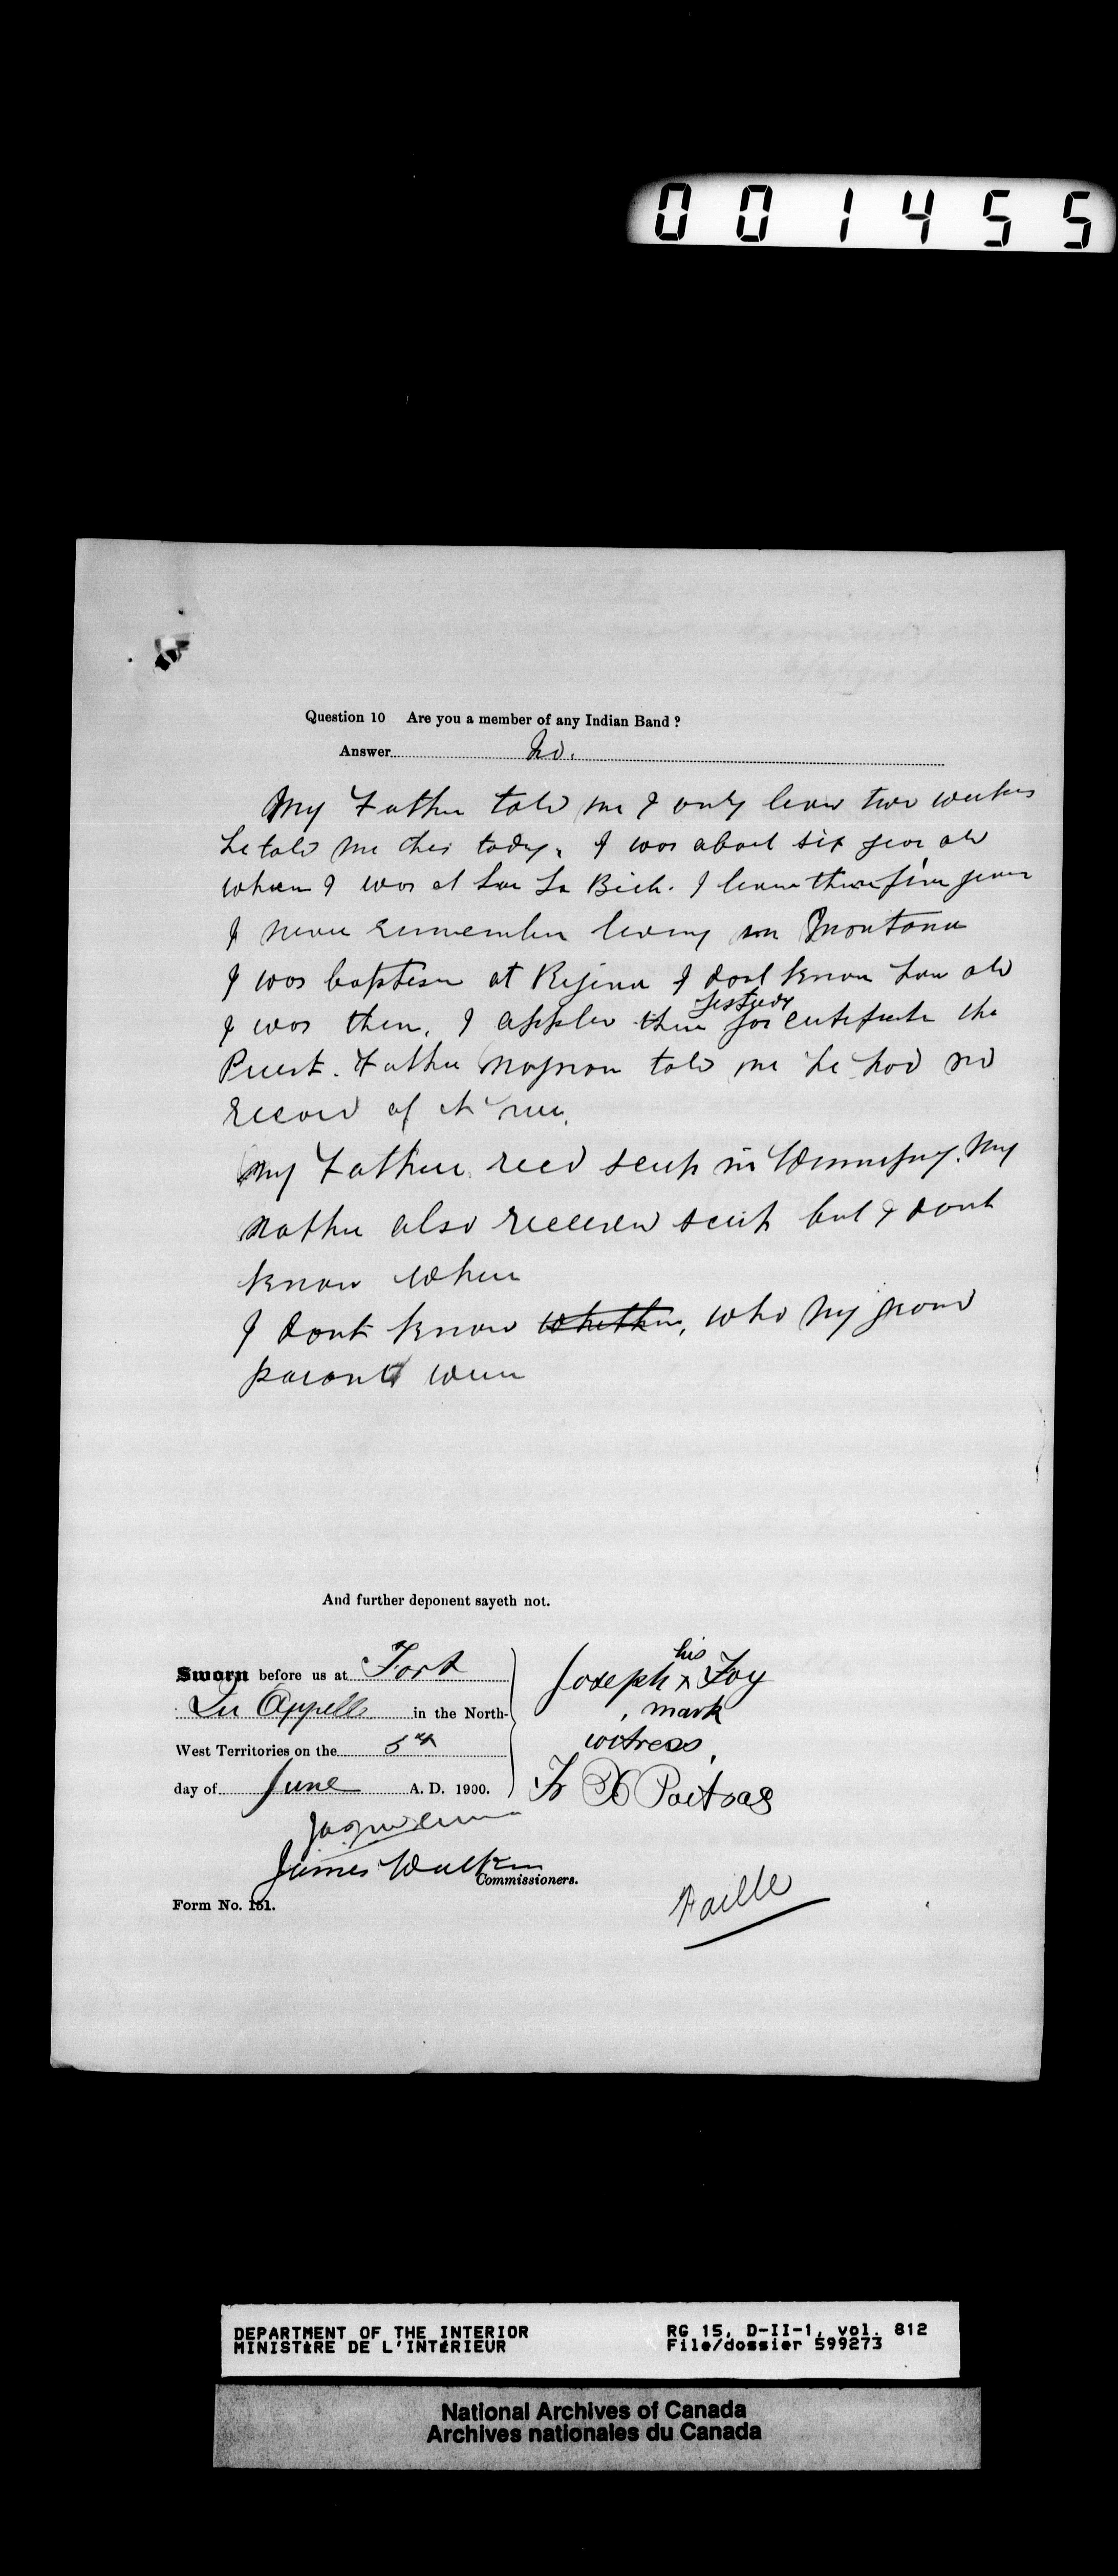 001455
Question 10 Are you a member of any Indian Band ?
Answer No.
My Father told me I only live two weeks
he told me this today. I was about six year old
when I was at Lac La Bich. I live there five years
I never remember living in Montana
I was baptism at Regina I dont know how old
yesterday
I was then. I applied there for certificate the
Priest. Father told me he had no
record of it
My Father recd scrip in Winnipeg. My
Mother also received scrip but I dont
know when
I dont know whether, who my grand
parent were
And further deponent sayeth not.
Sworn before us at Fort
Qu Appelle in the North-
West Territories on the 5th
day of June A. D. 1900.
his
Joseph x Foy
mark
witness
Fr X Poitras
James Walker
Commissioners.
Form No. 151.
Faille
DEPARTMENT OF THE INTERIOR
MINISTÈRE DE L'INTÉRIEUR
RG 15, D-II-1, vol. 812
File/dossier 599273
National Archives of Canada
Archives nationales du Canada